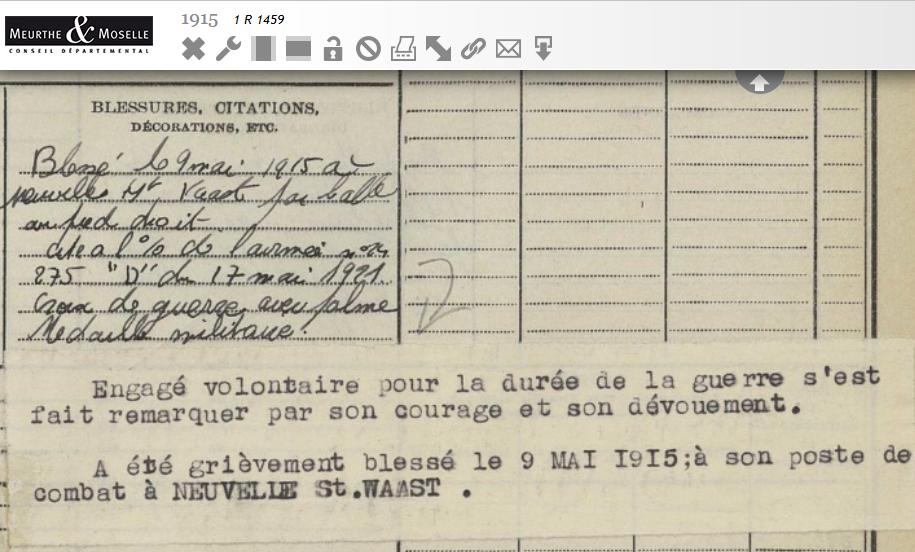 MEURTHE & MOSELLE
CONSEIL DÉPARTEMENTAL
1915 1 R 1459
BLESSURES, CITATIONS,
DÉCORATIONS, ETC.
Blessé le 9 mai 1915 à
neuville St Vaast par balle
au pied droit
cité a l'% de l'armée n°
275 "D" du 17 mai 1921.
Croix de guerre avec palme
Médaille militaire.
Engagé volontaire pour la durée de la guerre s'est
fait remarquer par son courage et son dévouement.
A été grièvement blessé le 9 MAI I9I5;à son poste de
combat à NEUVELLE St.WAAST .